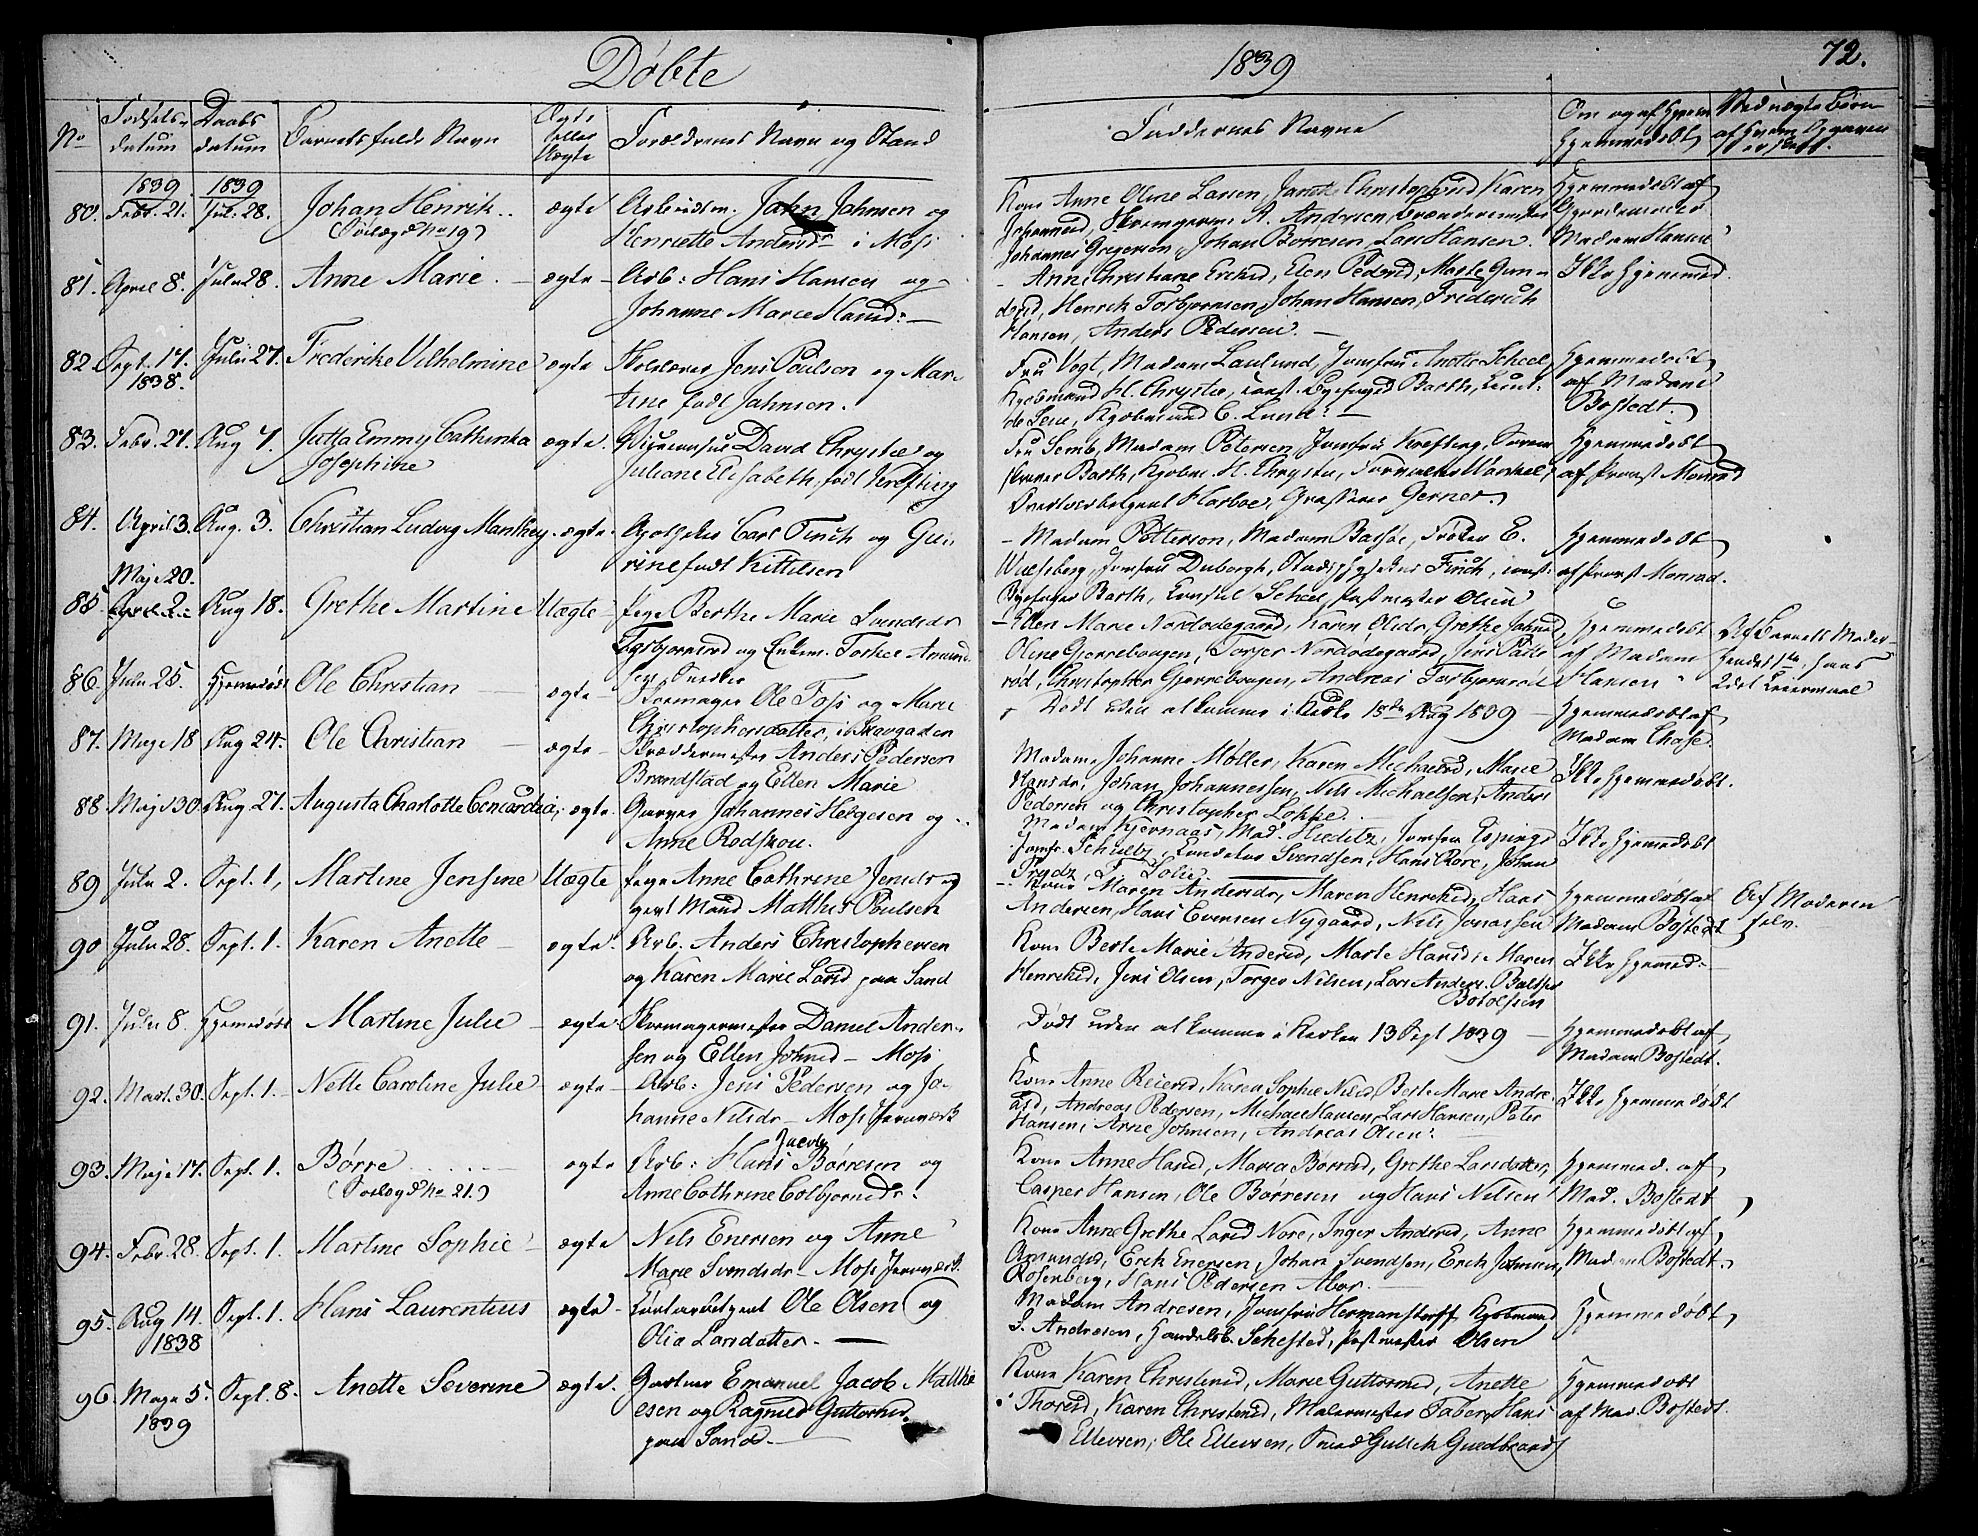 Døbte
1839
72.
No
Fødsels-
datum
Daabs
datum
Barnets fulde Navn
Ægte
eller
Uægte
Forældrenes Navn og Stand
Faddernes Navne
Om og af hvem
hjemmedøbt
Ved uægte Børn
1839 1839
80. Febr. 21. Jul. 28. Johan Henrik.. ægte Arbeidsm. John Johnsen og
(Forlægd No 19) Henriette Andersdr i Moss
Kone Anne Oline Larsen, Karen
Johannesd, A. Andersen,
Johannes Gregersen, Johan Børresen, Lars Hansen.
Hjemmedøbt af
Gjordemoder
Madam Hansen
81. April 8. Julu 28. Anne Marie. ægte Arb: Hans Hansen og
Johanne Marie Hansd:
Anne Christiane Ericksd, Elen Pedersd, Marte Gun-
dersd, Henrik Torbjørnsen, Johan Hansen, Friderich
Hansen, Anders Pedersen.
Ikke hjemmed.
82 Sept. 17. Julu 27. Frederikke Vilhelmine ægte Jens Poulsen og Mar-
1838. tine født Johnsen.
Fru Vogt, Madam Laulund, Jomfru Anette Scheel,
Kjøbmand H. Chrystie, const. Byefoged Barth, Lieut.
de Seue, Kjøbmand C. Lund:
Hjemmedøbt
af Madam
Bostedt.
83. Febr. 27. Aug 7. Jutta Emmy Cathinka ægte. David Chrystie og
Josephine Juliane Elisabeth født Krefting
Fru Semb, Madam Petersen, Jomfru Krefting, Soren-
skriver Barth, Kjøbm. H. Chrystie,
Horboe, Gerner
Hjemmedøbt
af Provst Monrad
84. April 3. Aug. 3. Christian Ludvig Manthey. ægte. Carl Finck og Gu-
rine født Kittelsen
Madam Petterson, Madam Basøe, Frøken E.
Wulfsberg, Jomfru Duborgh, Finck, const.
Byefoged Barth, Consul Scheel, Postmester Olsen
Hjemmedøbt
af Provst Monrad.
Maje 20.
85. April 2. Aug 18. Grethe Martine Uægte Pige Berthe Marie Svendsdr
Torbjørnsrød og Enkem. Torkel Amund-
sen
Ellen Marie Nordødegaard, Karen Olsdr, Grethe Johnsd,
Oline Gjerrebogen, Torger Nordødegaard, Jens Padde-
rød, Christopher Gjerrebogen, Andreas Torbjørnsrød
Hjemmedøbt
af Madam
Hansen
Af Barnets Moder-
hendes 1ste, hans
2det Leiermaal
86. Julu 25. Hjemedøbt Ole Christian ægte Skomager Ole Foss og Marie
Christophersdatter, i Skovgaden
Død uden at komme i Kirke 15de Aug 1839
Hjemmedøbt af
Madam Chase.
87. Maje 18 Aug 24. Ole Christian ægte Skræddermester Anders Pedersen
Brandstad og Ellen Marie
Madam Johanne Møller, Karen Michaelsd, Marie
Hansdr, Johan Johannessen, Nils Michaelsen, Anders
Pedersen og Christopher Løkke.
Ikke hjemmedøbt.
88 Maje 30. Aug 27. Augusta Charlotte Concordia, ægte. Garver Johannes Helgesen og
Anne Rødskou.
Madam Kjernaas, Mad. Hieditz, Jomfru Esping,
Jomfr. Schultz, Svendsen, Hans Rore, Johan
Prydz,
Ikke hjemmedøbt
89 Julu 2. Sept. 1, Martine Jensine Uægte Pige Anne Cathrine Jensdr og
gift Mand Mathis Poulsen
Kone Maren Andersdr, Maren Henriksd, Hans
Andersen, Hans Evensen Nygaard, Nils Jonassen
Hjemmedøbt af
Madam Bostedt
Af Moderen
selv.
90 Julu 28. Sept. 1. Karen Anette ægte. Arb. Anders Christophersen
og Karen Marie Larsd paa Sand
Kone Berte Marie Andersd, Marte Hansd, Maren
Henriksd, Jens Olsen, Torger Nilsen, Lars Anders. Balsses
Botolfsen
Ikke hjemmed:
91. Julu 8. Hjemedøbt Martine Julie ægte. Skomagermester Daniel Ander-
sen og Ellen Johnsd - Moss
Død uden at komme i Kirken 13 Sept 1839
Hjemmedøbt af
Madam Bostedt.
92. Mart. 30. Sept. 1. Nette Caroline Julie ægte Arb: Jens Pedersen og Jo-
hanne Nilsdr - Moss Jernværk
Kone Anne Reiersd, Karen Sophie Nilsd, Berte Marie Andre-
asd, Andreas Pedersen, Michael Hansen, Lars Hansen, Peter
Hansen, Arne Johnsen, Andreas Olsen.
Ikke hjemmedøbt
93. Maje 17. Sept. 1. Børre ægte Arb: Hans Jacob Børresen og
(Forlægd No 21.) Anne Cathrine Colbjørnsdr.
Kone Anne Hansd, Maria Børresd, Grethe Larsdatter,
Casper Hansen, Ole Børresen og Hans Nilsen
Hjemmed. af
Mad. Bostedt
94. Febr. 28. Sept. 1. Martine Sophie ægte Nils Enersen og Anne
Marie Svendsdr - Moss Jernværk.
Kone Anne Grethe Larsd Nore, Inger Andersd, Anne
Amundsd, Erik Enersen, Johan Svendsen, Erik Johnsen,
Rosenberg, Hans Pedersen Abor.
Hjemmedøbt af
Madam Bostedt.
95. Aug 14. Sept. 1. Hans Laurentius ægte Ole Olsen og
1838 Olia Larsdatter.
Madam Andresen, Jomfru Hermanstorff, Kjøbmand
S. Andresen, Handelsb. Schested, Postmester Olsen
Hjemmedøbt
96. Maje 5. Sept. 8. Anette Severine ægte. Gartner Emanuel Jacob Mathi-
1839 esen og Ragnild Guttormsd,
paa Sand.
Kone Karen Christensd, Marie Guttormsd, Anette
Thoresd, Karen Christensd, Malermester Faber, Hans
Ellevsen, Ole Ellevsen, Gulich Guldbrands
Hjemmedøbt
af Mad. Bostedt.